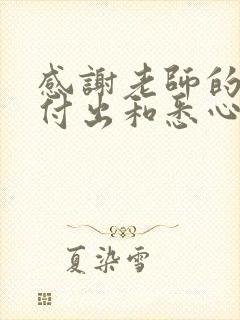 感謝老師的
付出和悉心
夏染雪